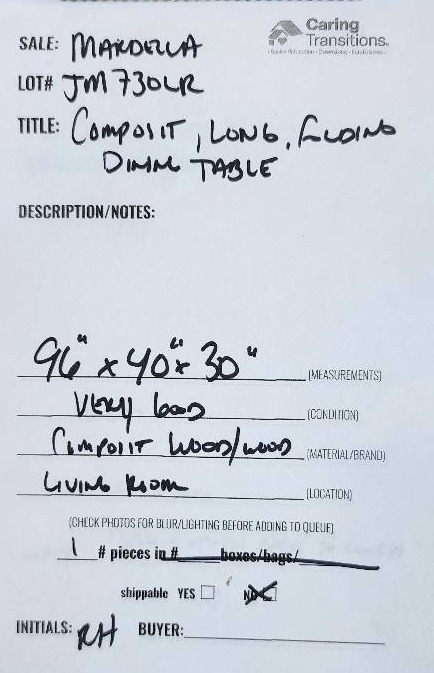 Caring
Transitions
SALE: MARDELLA
LOT# JM730LR
TITLE: COMPOSIT, LONG, FOLDING
DINING TABLE
DESCRIPTION/NOTES:
96" x 40" x 30" (MEASUREMENTS)
VERY GOOD (CONDITION)
COMPOSIT WOOD/WOOD (MATERIAL/BRAND)
LIVING ROOM (LOCATION)
(CHECK PHOTOS FOR BLUR/LIGHTING BEFORE ADDING TO QUEUE)
1 # pieces in # boxes/bags/
shippable YES NO
INITIALS: RH BUYER: